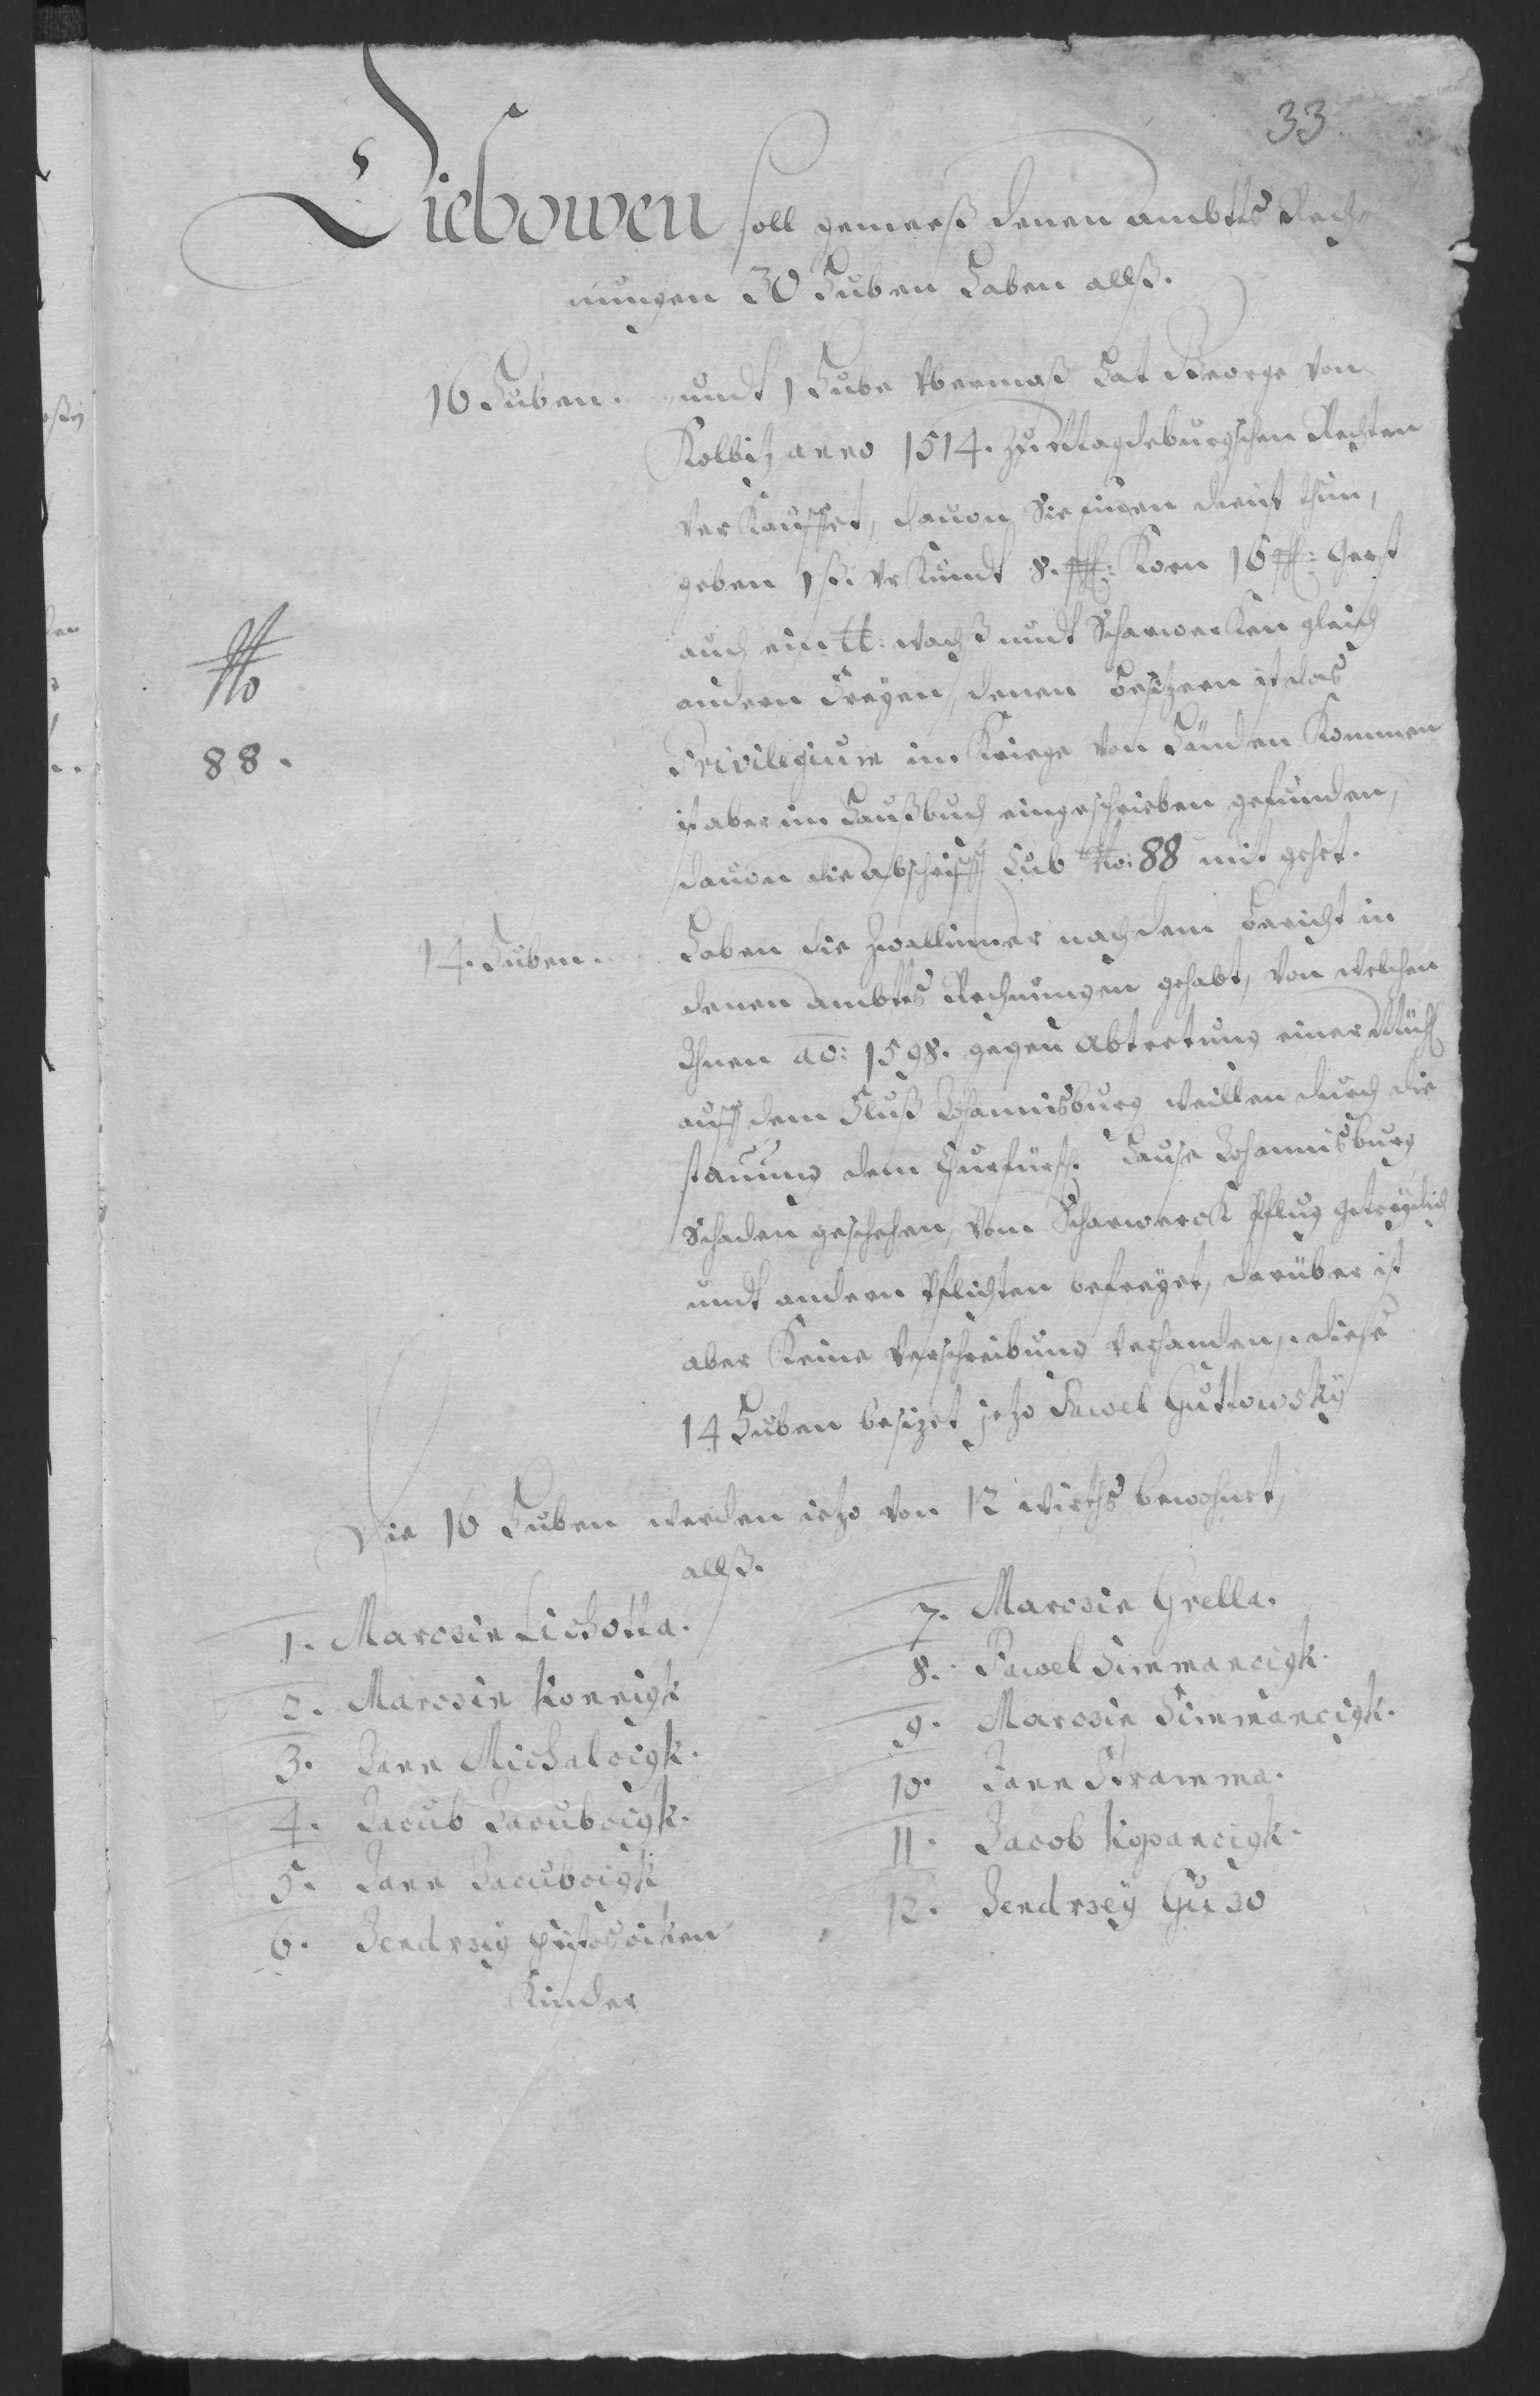 33
Diebowen soll gemeeß denen Ambtts Rech-
nungen 30 Huben haben allß.
16 Huben. undt 1 Hube Vbermaß hat George Von
Kolbitz anno 1514. zu Magdeburgschen Rechten
Verkauffet, davon Sie einen dienst thun,
geben 1 ß. Vrkundt 8. ß: Korn 16 ß: Gerst
auch ein tt: Wachß undt Scharwerken gleich
andern Freyen, denen besitzern ist das
No
88.
Privilegium im Kriege von Händen kommen
ist aber im Haußbuch eingeschrieben gefunden,
davon die Abschrifft Sub No: 88 mit gehet.
14. Huben. Haben die Zwallinner nach dem bericht in
denen Ambtts Rechnungen gehabt, Von welchen
Ihnen ao: 1598. gegen Abtretung einer Mühl
auff dem Fluß Johannisburg weillen durch die
stauung dem Churfürstl. Hause Johannisburg
Schaden geschehen, Vom Scharwerck Pflug getreydich
undt andern Pflichten befreyet, darüber ist
aber Keine Verschreibung Verhanden, diese
14 Huben besizet jetzo Pawel Guttowsky
Die 16 Huben werden ietzo von 12 Wirths bewohnet,
allß.
1. Marcsin Lichotta.
2. Marcsin Konnigk
3. Jann Michalcigk.
4. Jacub Jacubcigk.
5. Jann Jacubcigk
6. Jendrzey
Kinder
7. Marcsin Grella.
8. Pawel Simmancigk.
9. Marcsin Simmancigk.
10. Jann Kramma.
11. Jacob Kopancigk.
12. Jendrzey Guzo